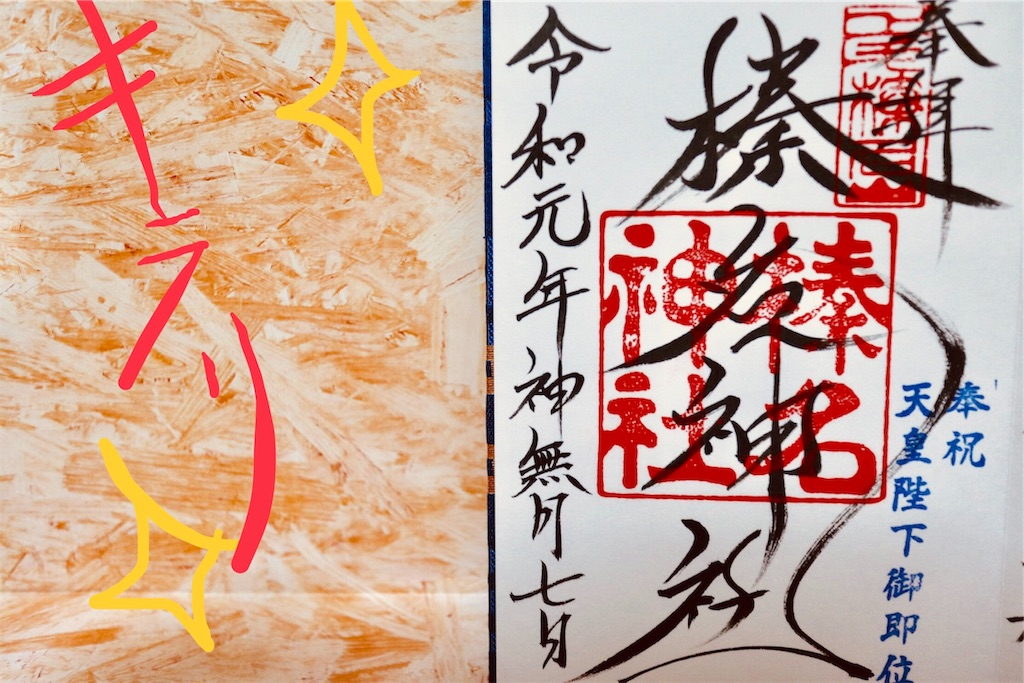 奉拝
奉祝
天皇陛下御即位
榛名神社
榛名
神社
令和元年神無月七日
キラリ